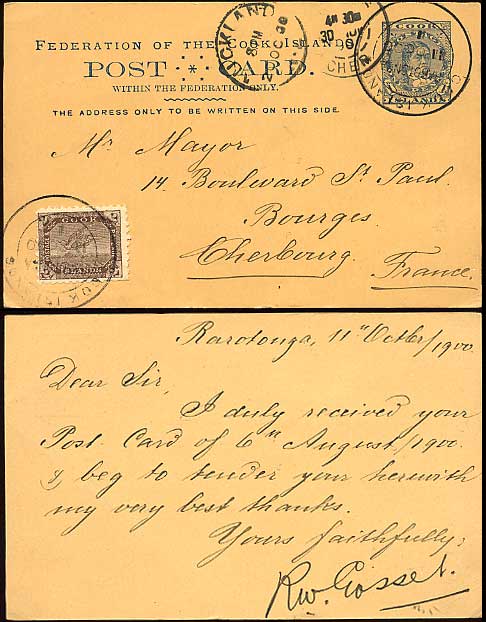 FEDERATION OF THE COOK ISLANDS.
POST CARD.
WITHIN THE FEDERATION ONLY.
THE ADDRESS ONLY TO BE WRITTEN ON THIS SIDE.
AUCKLAND
COOK
ISLANDS
Mr Mayor
14. Boulward St Paul.
Bourges.
Cherbourg.
France.
COOK
ISLANDS
Rarotonga, 11th Octber/1900
Dear Sir,
I duly received your
Post Card of 6th August/1900.
& beg to tender your herewith
my very best thanks.
Yours faithfully,
RW. Gosset.